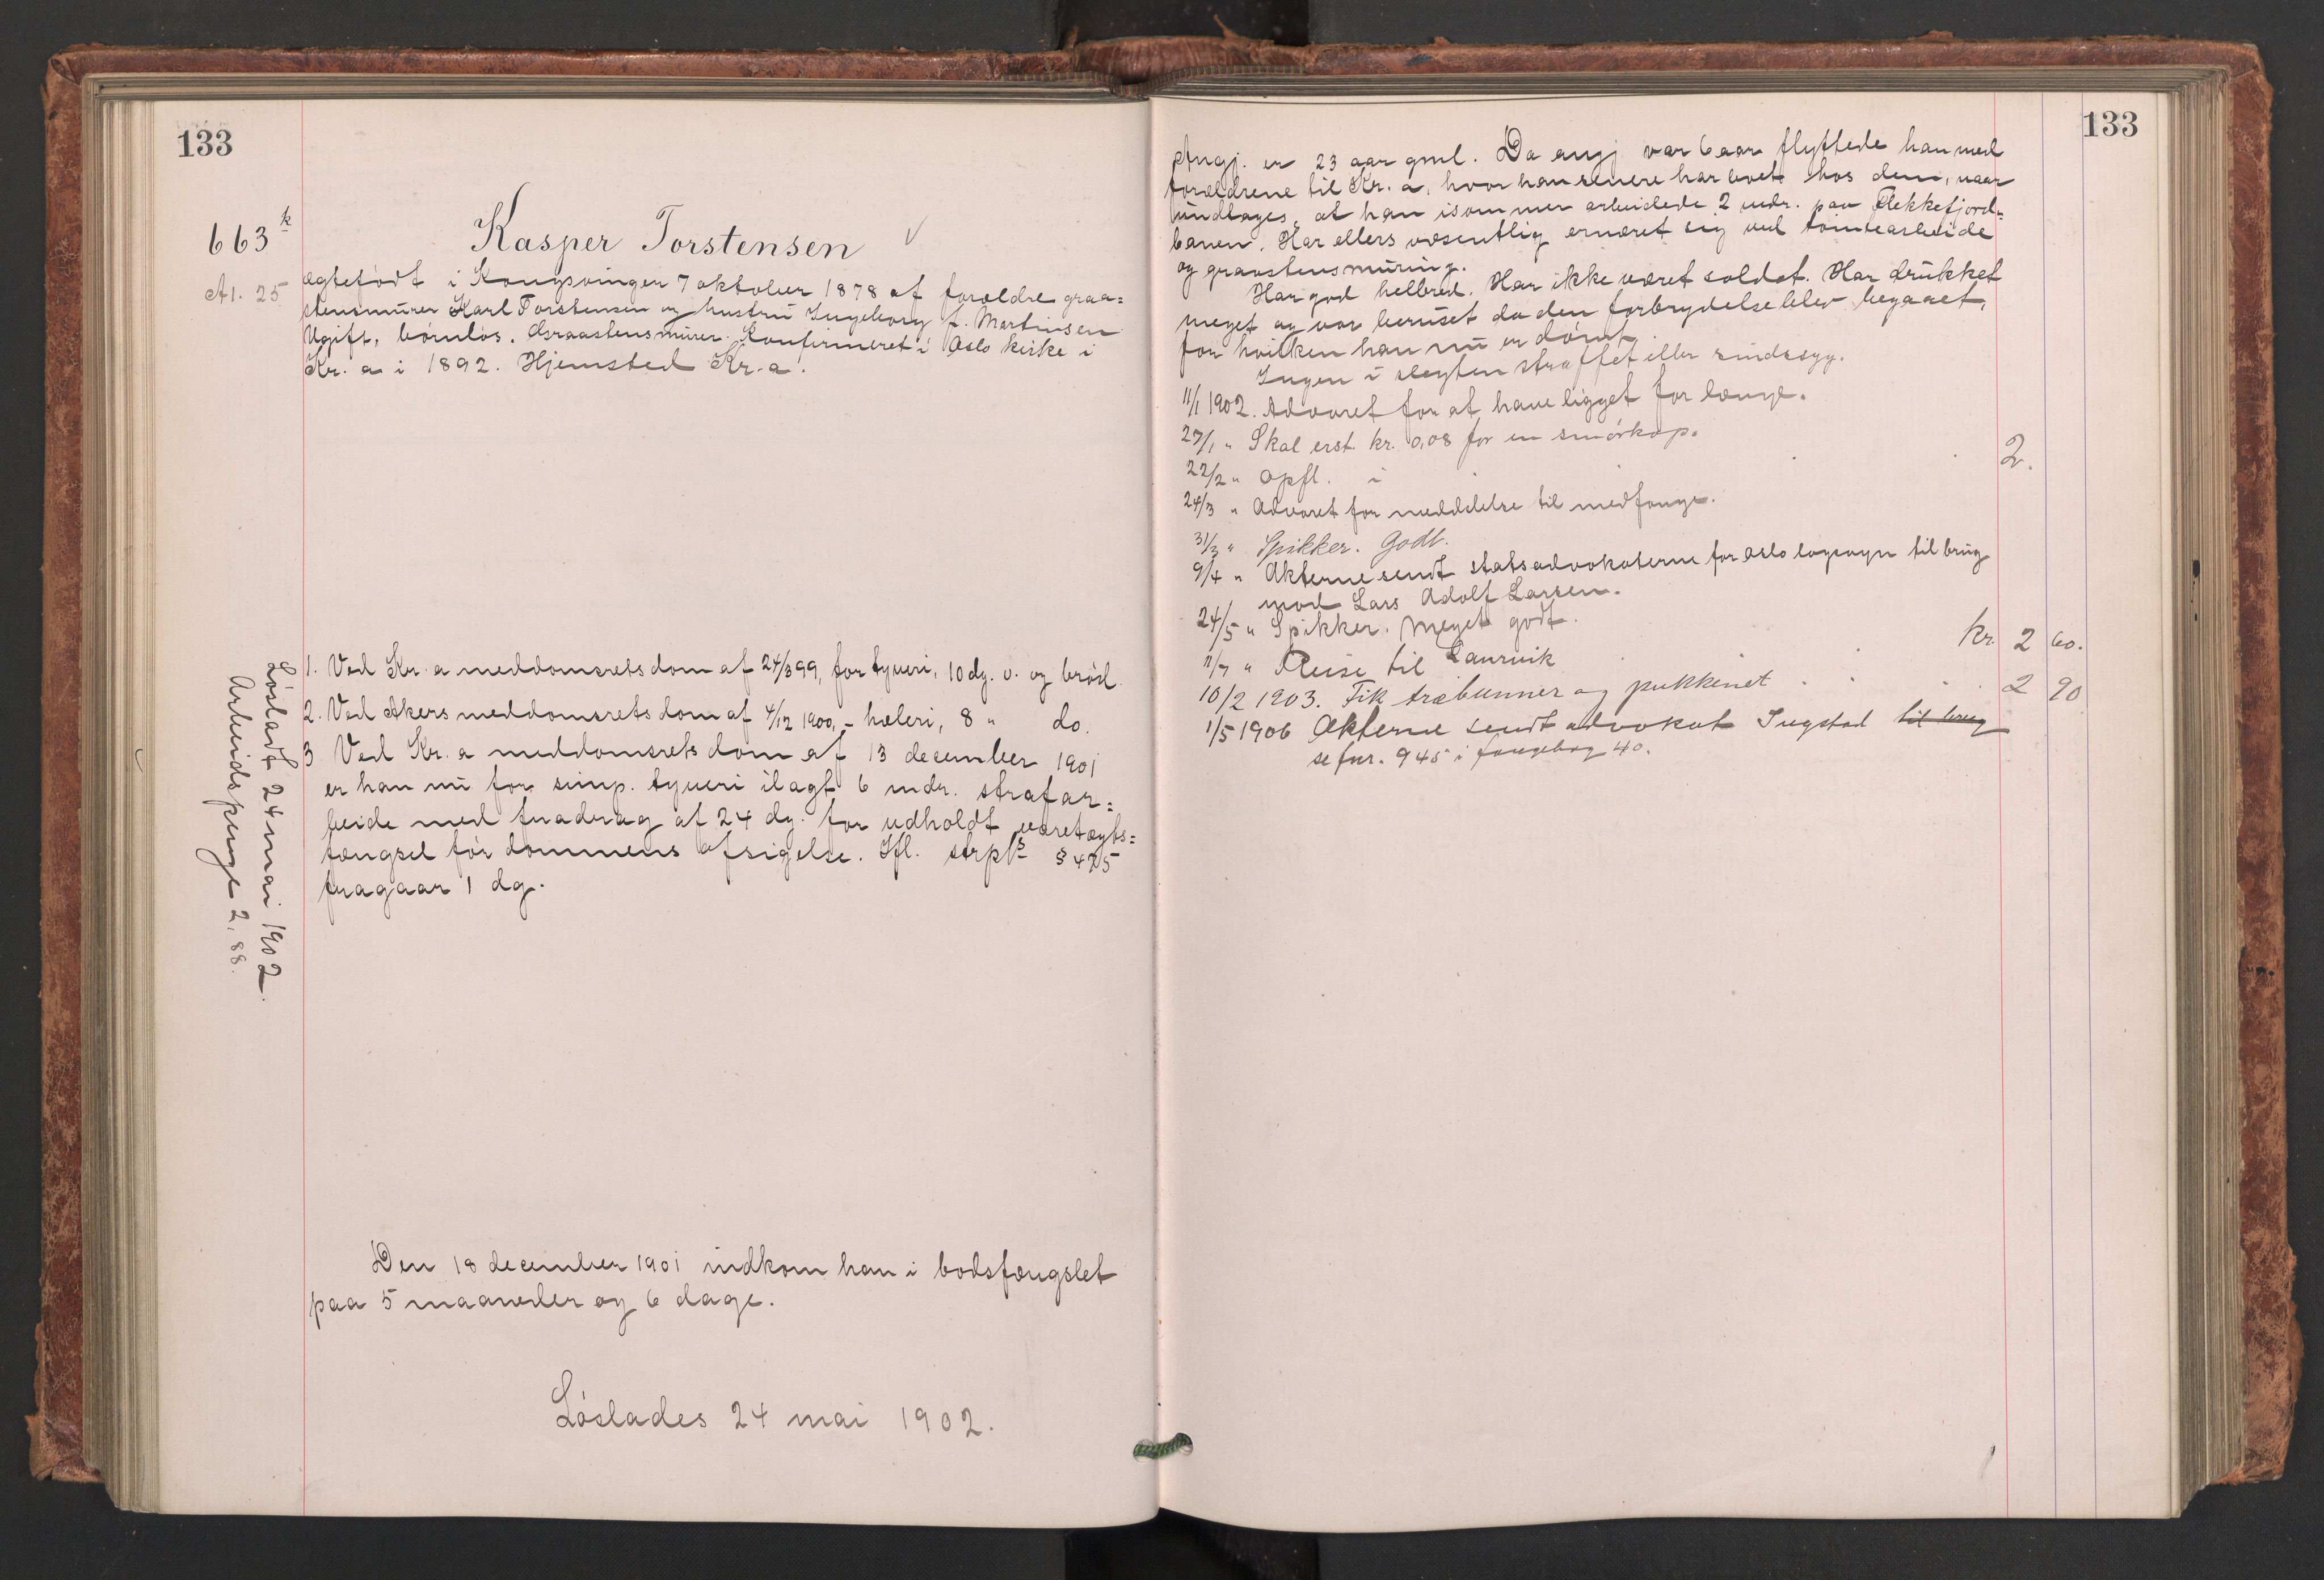 133
663 k
Kasper Torstensen
A1. 25
ægtefødt i Kongsvinger 7 oktober 1878 af forældre graa=
stensmurer Karl Torstensen og hustru Ingeborg f. Martinsen
Ugift, børnløs. Graastensmurer. Konfirmeret i Oslo kirke i
Kr. a i 1892. Hjemsted Kr. a.
1. Ved Kr. a meddomsrets dom af 24/3 99, for tyveri, 10 dg. v. og brød.
2. Ved Akers meddomsrets dom af 4/12 1900, - hæleri, 8 " do.
3 Ved Kr. a meddomsrets dom af 13 december 1901
er han nu for simp. tyveri ilagt 6 mdr. strafar=
beide med fradrag af 24 dg. for udholdt varetægts=
fængsel før dommens afsigelse. Ifl. strpl § 475
fragaar 1 dg.
Løsladt 24 mai 1902.
Arbeidspenge 2,88.
Den 18 december 1901 indkom han i bodsfængslet
paa 5 maaneder og 6 dage.
Løslades 24 mai 1902.
133
Angj. er 23 aar gml. Da angj var 6 aar flyttede han med
forældrene til Kr. a, hvor han senere har boet hos dem, naar
undtages, at han isommer arbeidede 2 mdr. paa Flekkefjord=
banen. Har ellers væsentlig ernæret sig ved tomtearbeide
og graastensmuring.
Har god helbred. Har ikke været soldat. Har drukket
meget og var beruset da den forbrydelse blev begaaet,
for hvilken han nu er dømt.
Ingen i slegten straffet eller sindssyg.
11/1 1902. Advaret for at have ligget for længe.
27/1 " Skal erst. kr. 0,08 for en smørkop.
22/2 " Opfl. i 2.
24/3 " Advaret for meddelelse til medfange.
31/3 " Spikker. Godt.
9/4 " Akterne sendt statsadvokaterne for Oslo lagsogn til brug
mod Lars Adolf Larsen.
24/5 " Spikker. Meget godt.
" Reise til Laurvik Kr. 2 60.
10/2 1903. Fik træbunner og pukkenet 2 90
1/5 1906 Akterne sendt advokat Ingstad til brug
se fnr. 945 i fangebog 40.